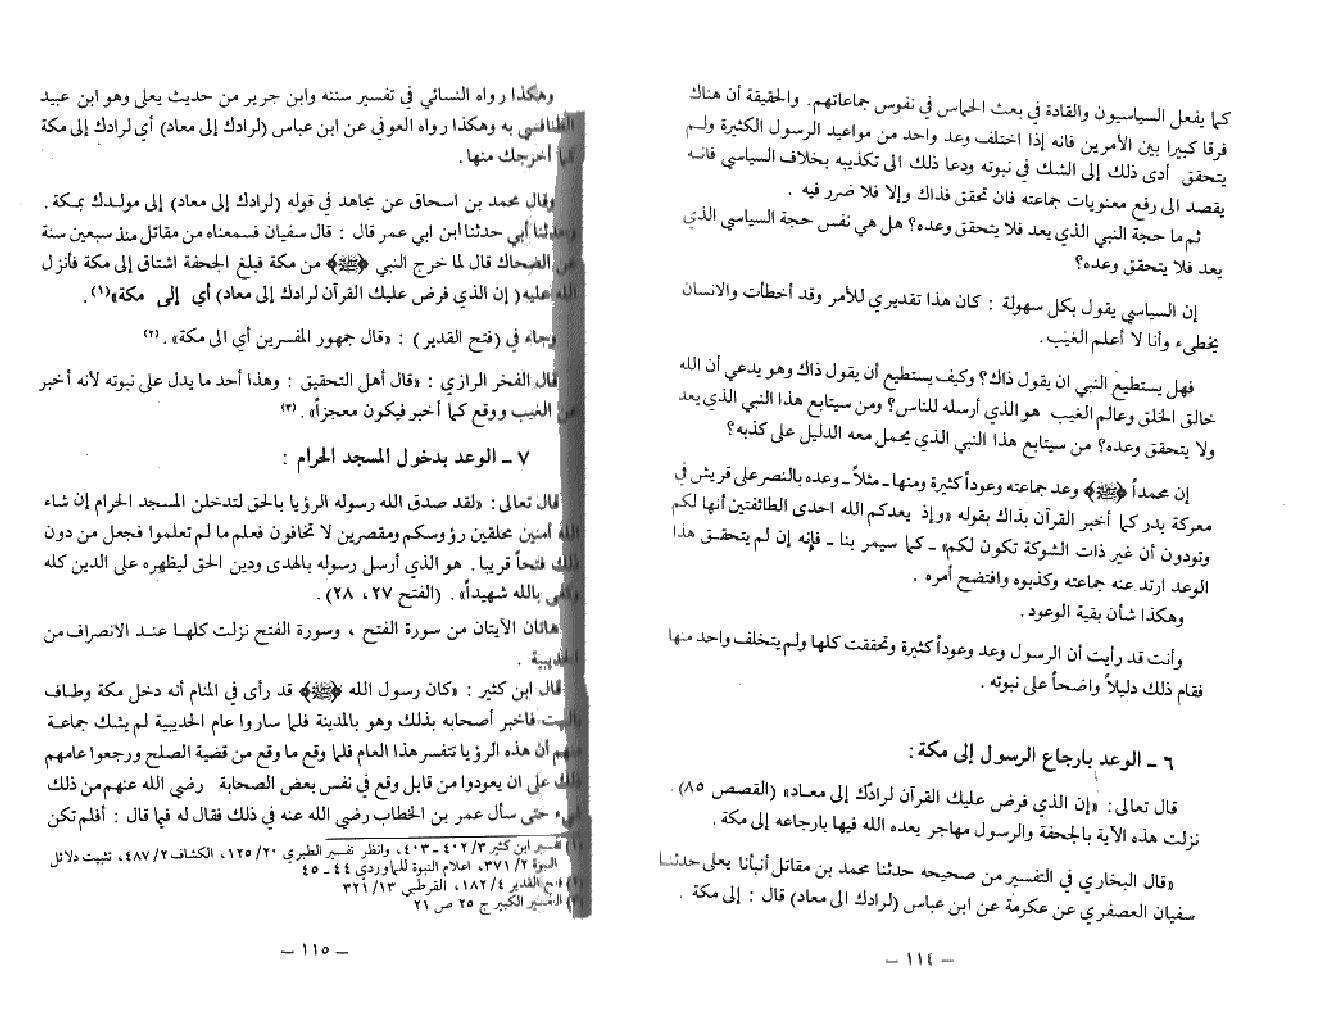 كما يفعل السياسيون والقادة في بعث الحماس في نفوس جماعاتهم. والحقيقة أن هناك
فرقا كبيرا بين الأمرين فانه إذا اختلف وعد واحد من مواعيد الرسول الكثيرة ولم
يتحقق أدى ذلك إلى الشك في نبوته ودعا ذلك الى تكذيبه بخلاف السياسي فانه
يقصد الى رفع معنويات جماعته فان تحقق فذاك وإلا فلا ضرر فيه .
ثم ما حجة النبي الذي يعد فلا يتحقق وعده؟ هل هي نفس حجة السياسي الذي
يعد فلا يتحقق وعده؟
إن السياسي يقول بكل سهولة : كان هذا تقديري للأمر وقد أخطأت والانسان
يخطىء وأنا لا أعلم الغيب.
فهل يستطيع النبي ان يقول ذاك؟ وكيف يستطيع أن يقول ذاك وهو يدعي أن الله
خالق الخلق وعالم الغيب هو الذي أرسله للناس؟ ومن سيتابع هذا النبي الذي يعد
ولا يتحقق وعده؟ من سيتابع هذا النبي الذي يحمل معه الدليل على كذبه؟
إن محمداً ﴿ﷺ﴾ وعد جماعته وعوداً كثيرة ومنها ـ مثلاً ـ وعده بالنصر على قريش في
معركة بدر كما أخبر القرآن بذاك بقوله «وإذ يعدكم الله احدى الطائفتين أنها لكم
وتودون أن غير ذات الشوكة تكون لكم» ـ كما سيمر بنا ـ فإنه إن لم يتحقق هذا
الوعد ارتد عنه جماعته وكذبوه وافتضح أمره .
وهكذا شأن بقية الوعود.
وأنت قد رأيت أن الرسول وعد وعوداً كثيرة وتحققت كلها ولم يتخلف واحد منها
فقام ذلك دليلاً واضحاً على نبوته .
٦ ـ الوعد بارجاع الرسول إلى مكة :
قال تعالى: «إن الذي فرض عليك القرآن لرادك إلى معاد» (القصص ٨٥).
نزلت هذه الآية بالجحفة والرسول مهاجر يعده الله فيها بارجاعه إلى مكة .
«قال البخاري في التفسير من صحيحه حدثنا محمد بن مقاتل أنبأنا يعلى حدثنا
سفيان العصفري عن عكرمة عن ابن عباس (لرادك الى معاد) قال : إلى مكة .
ـ ١١٤ ـ
وهكذا رواه النسائي في تفسير سننه وابن جرير من حديث يعلى وهو ابن عبيد
الطنافسي به وهكذا رواه العوفي عن ابن عباس (لرادك إلى معاد) أي لرادك إلى مكة
كما أخرجك منها.
وقال محمد بن اسحاق عن مجاهد في قوله (لرادك إلى معاد) إلى مولدك بمكة.
وحدثنا أبي حدثنا ابن ابي عمر قال : قال سفيان فسمعناه من مقاتل منذ سبعين سنة
عن الضحاك قال لما خرج النبي ﴿ﷺ﴾ من مكة فبلغ الجحفة اشتاق إلى مكة فأنزل
الله عليه ( إن الذي فرض عليك القرآن لرادك إلى معاد) أي إلى مكة»(١).
وجاء في (فتح القدير) : «قال جمهور المفسرين أي الى مكة». (٢)
قال الفخر الرازي : «قال أهل التحقيق : وهذا أحد ما يدل على نبوته لأنه أخبر
عن الغيب ووقع كما أخبر فيكون معجزاً». (٣)
٧ ـ الوعد بدخول المسجد الحرام :
قال تعالى: «لقد صدق الله رسوله الرؤيا بالحق لتدخلن المسجد الحرام إن شاء
الله آمنين محلقين رؤوسكم ومقصرين لا تخافون فعلم ما لم تعلموا فجعل من دون
ذلك فتحاً قريبا. هو الذي أرسل رسوله بالهدى ودين الحق ليظهره على الدين كله
وكفى بالله شهيداً» . (الفتح ٢٧ ، ٢٨).
هاتان الآيتان من سورة الفتح ، وسورة الفتح نزلت كلها عند الانصراف من
الحديبية .
قال ابن كثير : «كان رسول الله ﴿ﷺ﴾ قد رأى في المنام أنه دخل مكة وطاف
بالبيت فأخبر أصحابه بذلك وهو بالمدينة فلما ساروا عام الحديبية لم يشك جماعة
منهم أن هذه الرؤيا تتفسر هذا العام فلما وقع ما وقع من قضية الصلح ورجعوا عامهم
ذلك على ان يعودوا من قابل وقع في نفس بعض الصحابة رضي الله عنهم من ذلك
شيء حتى سأل عمر بن الخطاب رضي الله عنه في ذلك فقال له فيما قال : أفلم تكن
(١) تفسير ابن كثير ٣/ ٤٠٢ ـ ٤٠٣، وانظر تفسير الطبري ٢٠/ ١٢٥، الكشاف ٢/ ٤٨٧، تثبيت دلائل
النبوة ٢/ ٣٧١، اعلام النبوة للماوردي ٤٤ ـ ٤٥
(٢) فتح القدير ٤/ ١٨٢، القرطبي ١٣/ ٣٢١
(٣) التفسير الكبير ج ٢٥ ص ٢١
ـ ١١٥ ـ